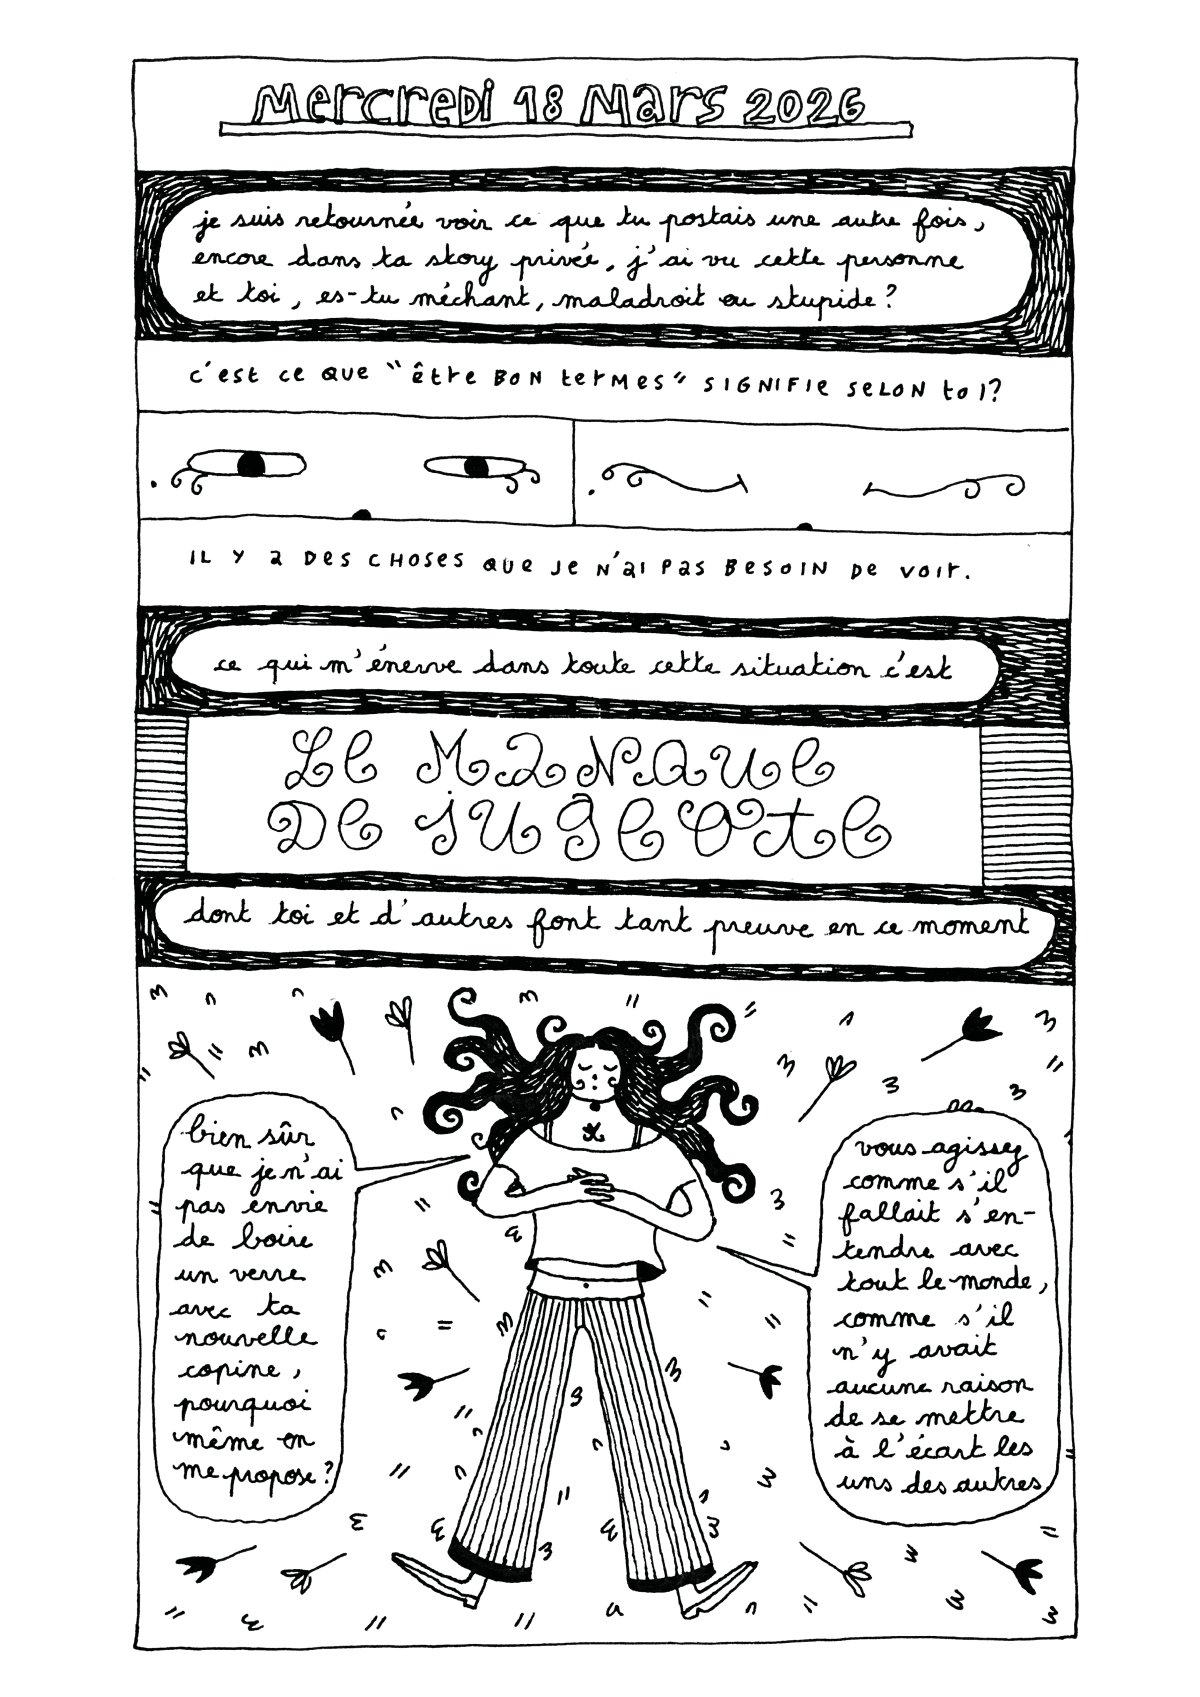 Mercredi 18 Mars 2026
je suis retournée voir ce que tu postais une autre fois,
encore dans ta story privée, j'ai vu cette personne
et toi, es-tu méchant, maladroit ou stupide?
c'est ce que "être bon termes" signifie selon toi?
il y a des choses que je n'ai pas besoin de voir.
ce qui m'énerve dans toute cette situation c'est
Le manque
de jugeote
dont toi et d'autres font tant preuve en ce moment
bien sûr
que je n'ai
pas envie
de boire
un verre
avec ta
nouvelle
copine,
pourquoi
même on
me propose?
vous agissez
comme s'il
fallait s'en-
tendre avec
tout le monde,
comme s'il
n'y avait
aucune raison
de se mettre
à l'écart les
uns des autres